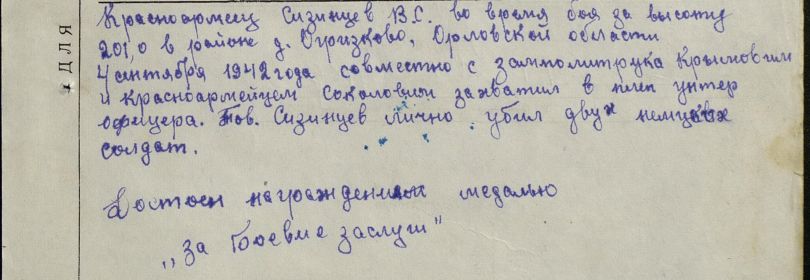 ДЛЯ
Красноармеец Сизинцев В.С. во время боя за высоту
201,0 в районе д. Огризково, Орловской области
4 сентября 1942 года совместно с замполитрука Крымовым
и красноармейцем Соколовым захватил в плен унтер
офицера. Тов. Сизинцев лично убил двух немцев
солдат.
Достоен награждения медалью
„За боевые заслуги"